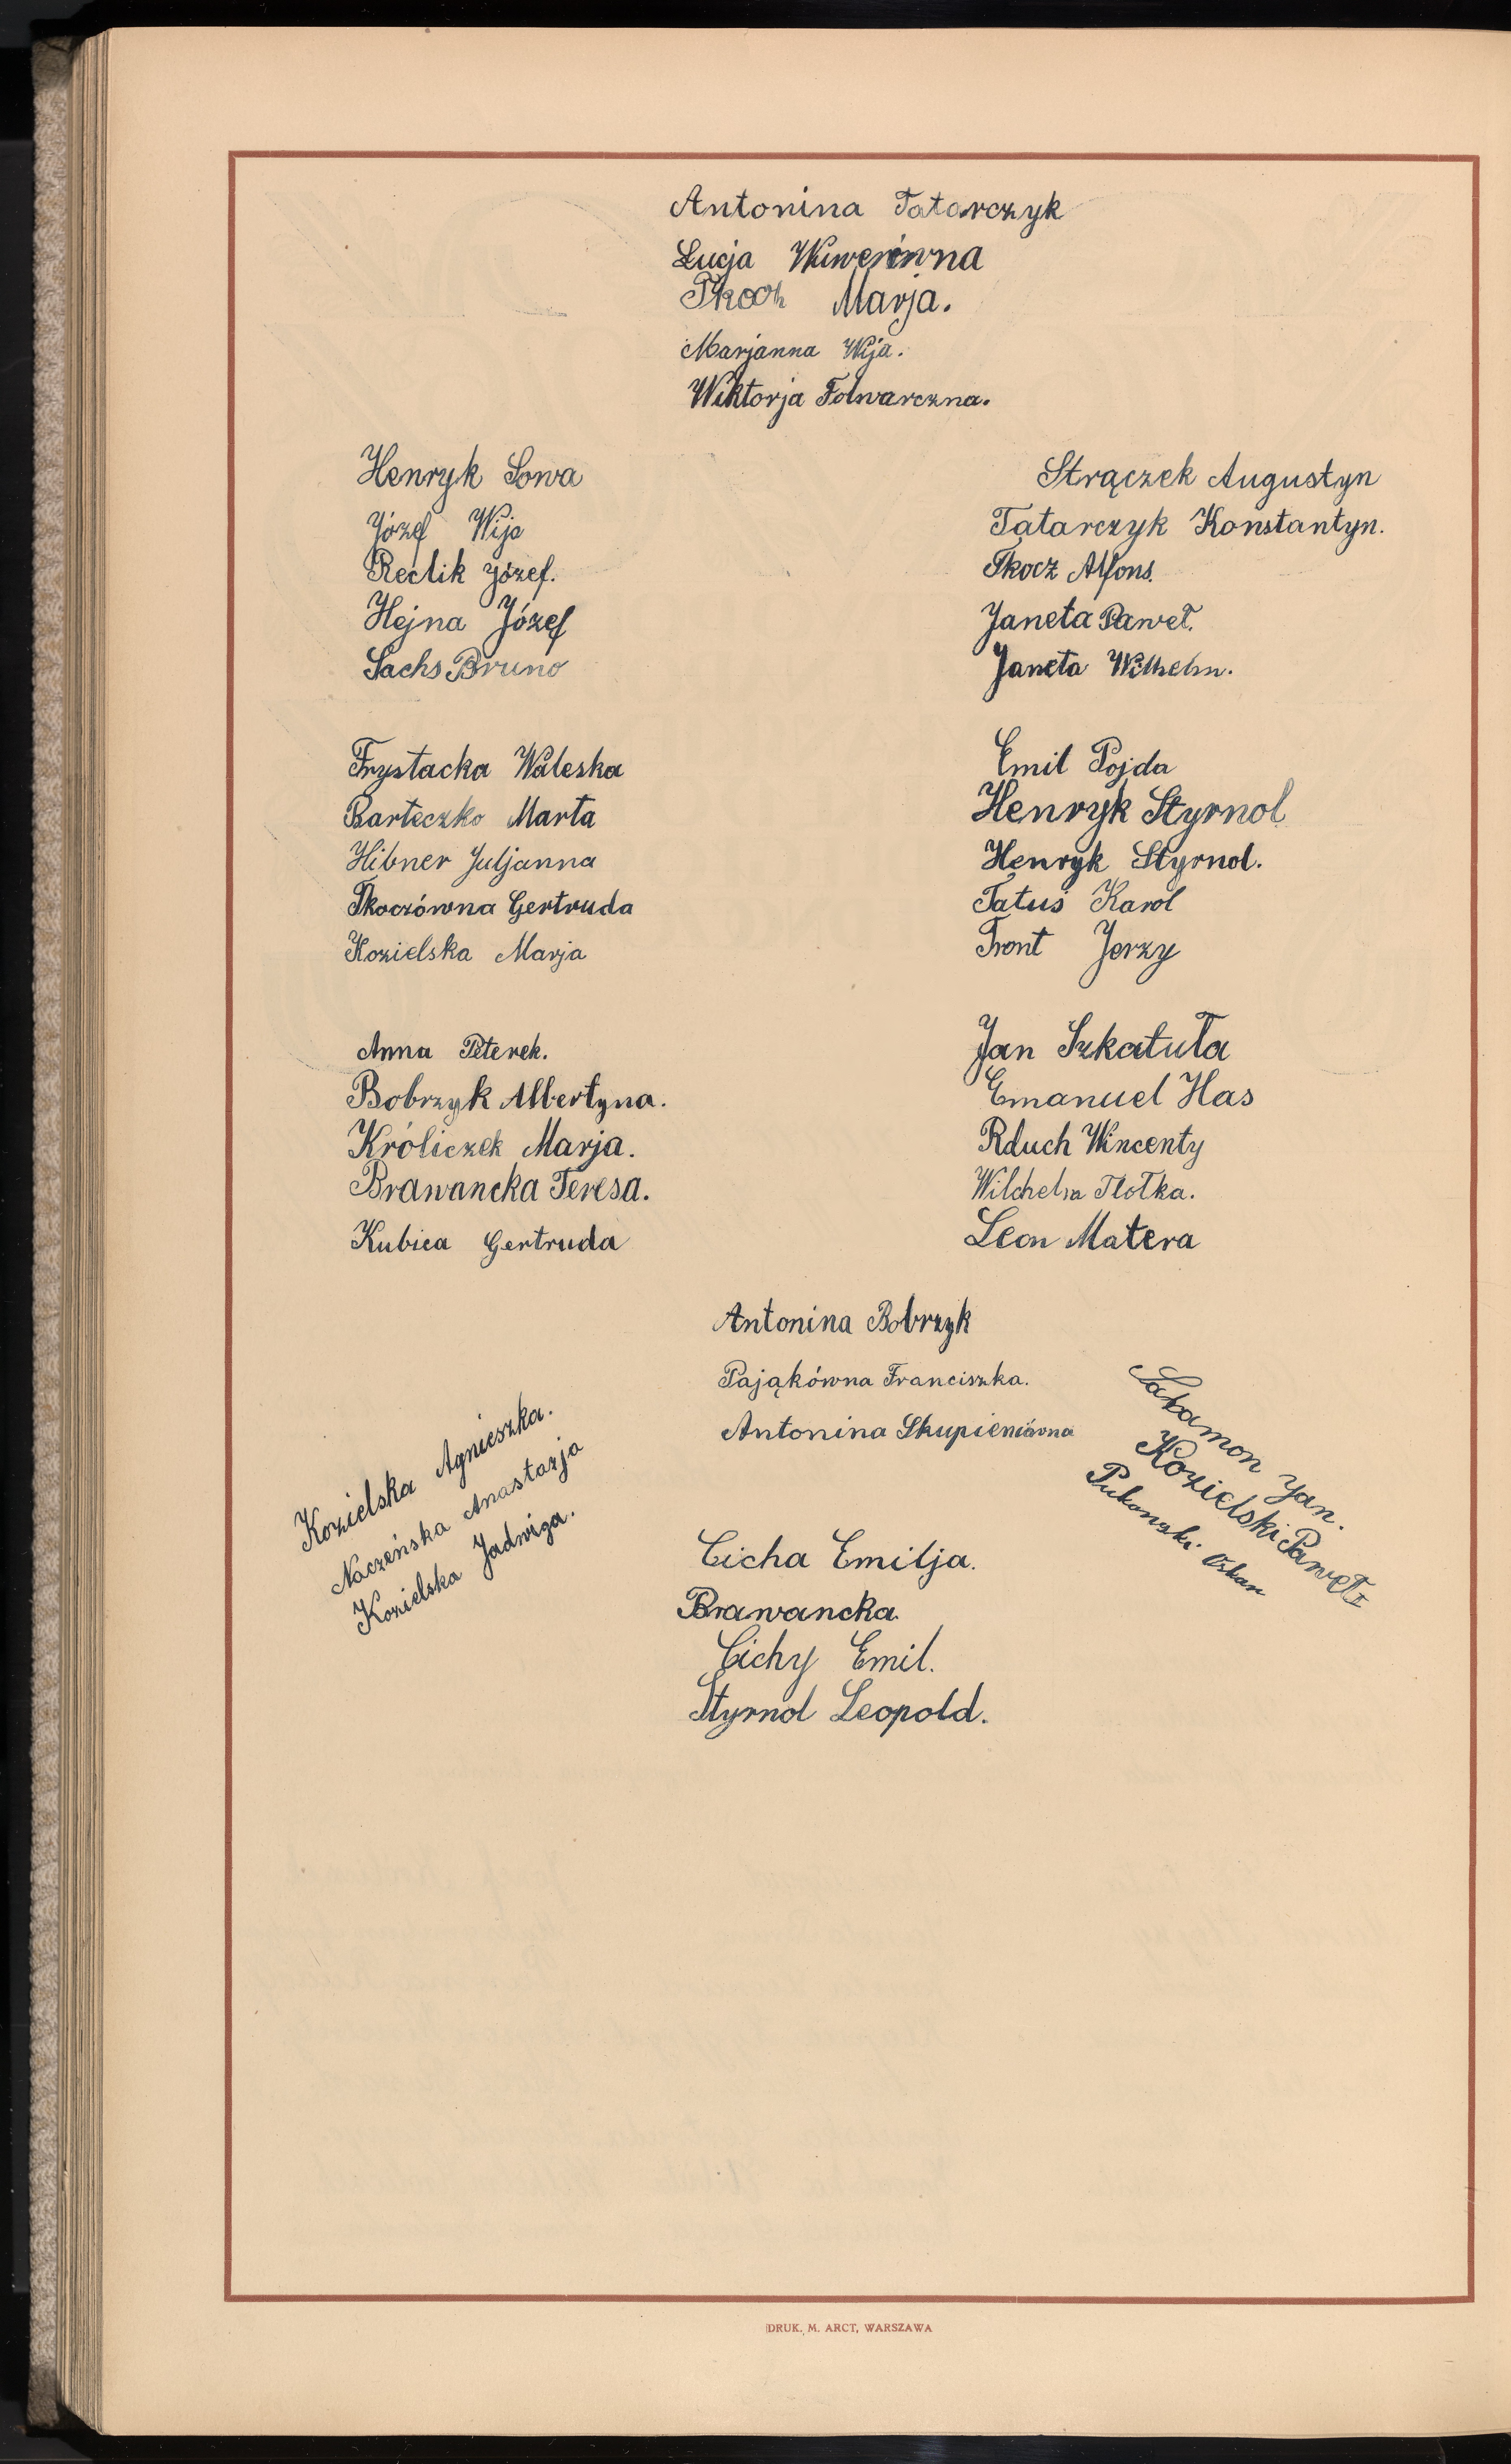 Antonina Tatarczyk
Łucja Wuwerówna
Tkocz Marja.
Marjanna Wija.
Wiktorja Folwarczna.
Henryk Sowa
Józef Wija
Reclik Józef.
Hejna Józef
Sachs Bruno
Strączek Augustyn
Tatarczyk Konstantyn.
Tkocz Alfons.
Janeta Paweł.
Janeta Wilhelm.
Frystacka Waleska
Barteczko Marta
Hibner Juljanna
Tkoczówna Gertruda
Kozielska Marja
Emil Pojda
Henryk Styrnol
Henryk Styrnol.
Tatuś Karol
Front Jerzy
Anna Peterek.
Bobrzyk Albertyna.
Króliczek Marja.
Brawancka Teresa.
Kubica Gertruda
Jan Szkatuła
Emanuel Has
Rduch Wincenty
Wilchelm Tlołka.
Leon Matera
Antonina Bobrzyk
Pająkówna Franciszka.
Antonina Skupieniówna
Kozielska Agnieszka.
Naczeńska Anastazja
Kozielska Jadwiga.
Salamon Jan.
Kozielski Paweł
Oskar
Cicha Emilja.
Brawancka
Cichy Emil.
Styrnol Leopold.
DRUK. M. ARCT, WARSZAWA